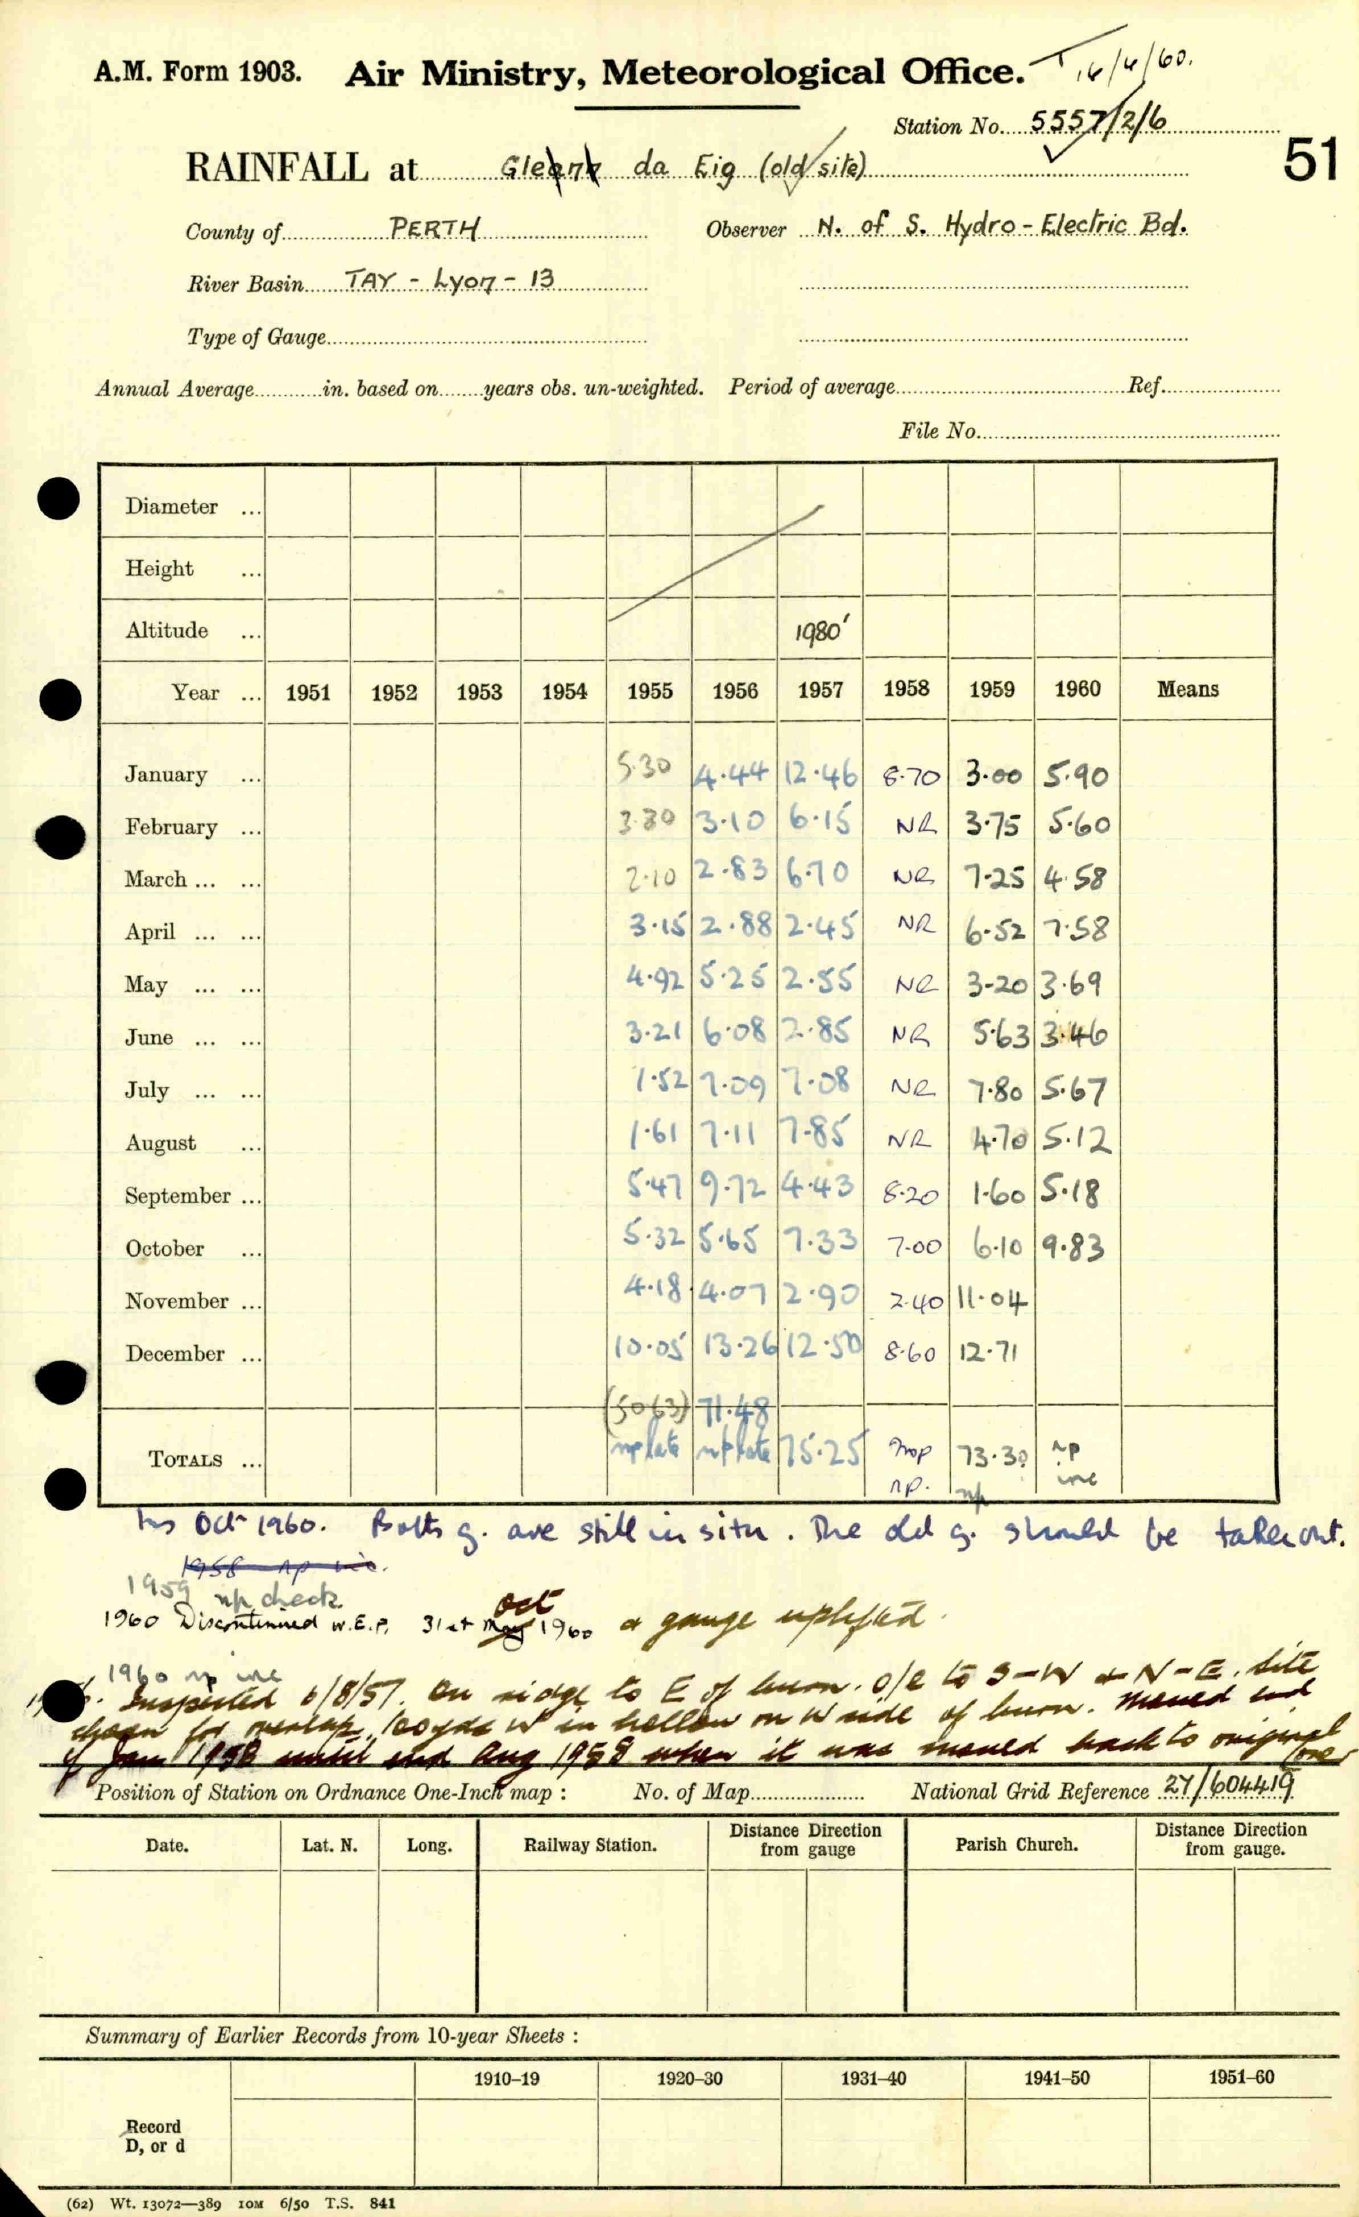 A.M. Form 1903. Air Ministry, Meteorological Office. T 16/4/60.
Station No. 5557/2/6
51
RAINFALL at Glenn da Eig (old site)
County of PERTH Observer N. of S. Hydro-Electric Bd.
River Basin TAY - Lyon - 13
Type of Gauge
Annual Average in. based on years obs. un-weighted. Period of average Ref.
File No.
Diameter ...
Height ...
Altitude ... 1980'
Year ... 1951 1952 1953 1954 1955 1956 1957 1958 1959 1960 Means
January ... 5.30 4.44 12.46 8.70 3.00 5.90
February ... 3.80 3.10 6.15 NR 3.75 5.60
March ... ... 2.10 2.83 6.70 NR 7.25 4.58
April ... ... 3.15 2.88 2.45 NR 6.52 7.58
May ... ... 4.92 5.25 2.55 NR 3.20 3.69
June ... ... 3.21 6.08 2.85 NR 5.63 3.46
July ... ... 1.52 7.09 7.08 NR 7.80 5.67
August ... 1.61 7.11 7.85 NR 4.70 5.12
September ... 5.47 9.72 4.43 8.20 1.60 5.18
October ... 5.32 5.65 7.33 7.00 6.10 9.83
November ... 4.18 4.07 2.90 2.40 11.04
December ... 10.05 13.26 12.50 8.60 12.71
(50.63) 71.48
TOTALS ... np late np late 75.25 np. 73.30 np np inc
Ins Oct 1960. Both g. are still in situ. The old g. should be taken out.
1958 np inc.
1959 np check
1960 Discontinued W.E.F. 31st May Oct 1960 & gauge uplifted.
1960 np inc
Inspected 6/8/57. On ridge to E of burn. O/E to S-W & N-E. Site
chosen for overlap, 100yds W in hollow on W side of burn. Moved end
of Jan 1958 until end Aug 1958 when it was moved back to original
Position of Station on Ordnance One-Inch map : No. of Map National Grid Reference 27/604419
Date. Lat. N. Long. Railway Station. Distance Direction from gauge Parish Church. Distance Direction from gauge.
Summary of Earlier Records from 10-year Sheets :
1910–19 1920–30 1931–40 1941–50 1951–60
Record
D, or d
(62) Wt. 13072—389 10M 6/50 T.S. 841